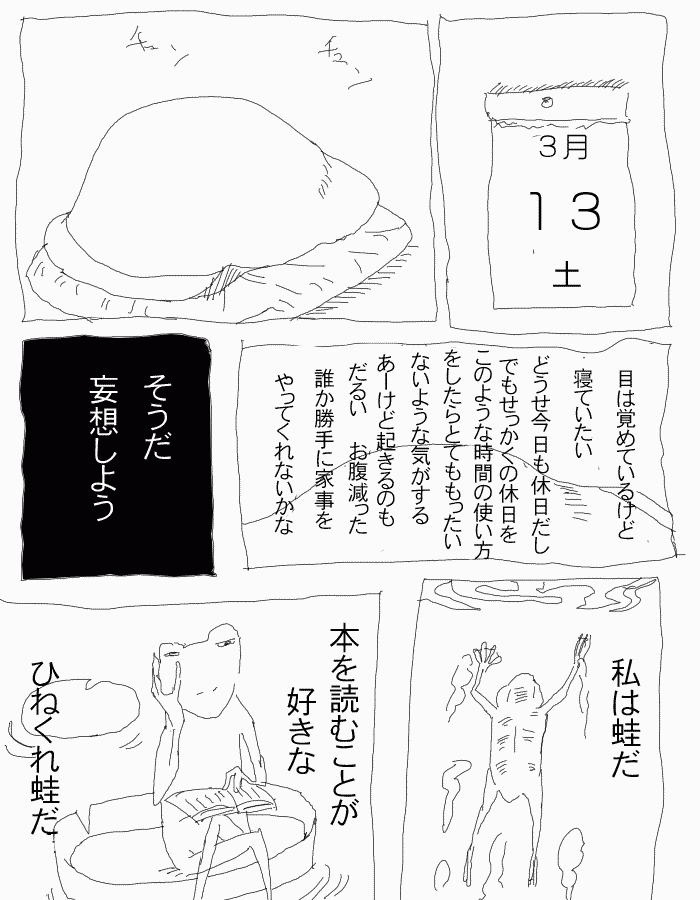 3月
13
土
チュン
チュン
目は覚めているけど
寝ていたい
どうせ今日も休日だし
でもせっかくの休日を
このような時間の使い方
をしたらとてももったい
ないような気がする
あーけど起きるのも
だるい　お腹減った
誰か勝手に家事を
やってくれないかな
そうだ
妄想しよう
私は蛙だ
本を読むことが
好きな
ひねくれ蛙だ